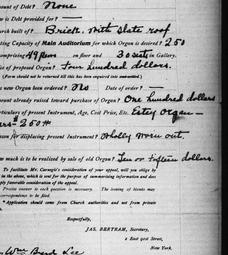 mount of Debt? None
is Debt provided for? —
hurch built of? Brick. With slate roof
ting Capacity of Main Auditorium for which Organ is desired? 250
omprising 49 Pews on floor and 30 seats in Gallery.
ice of proposed Organ? Four hundred dollars.
(Form should not be returned till this has been inquired into
s new Organ been ordered? No Date of order? —
mount already raised toward purchase of Organ? One hundred dollars
rticulars of present Instrument, Age, Cost Price, Etc. Estey Organ—
250
eason for displacing present Instrument? Wholly worn out.
ow much is to be realized by sale of old Organ? Ten or fifteen dollars.
To facilitate Mr. Carnegie's consideration of your appeal, will you oblige by
in the above, which is sent for the purpose of summarizing information and does
ply favorable consideration of the appeal.
Precise answer to each question is necessary. The issuing of blanks may
correspondence to be completed.
* Application should come from Church authorities and not from private
Respectfully,
JAS. BERTRAM, Secretary,
2 East 91st Street,
New York.
Wm Lee